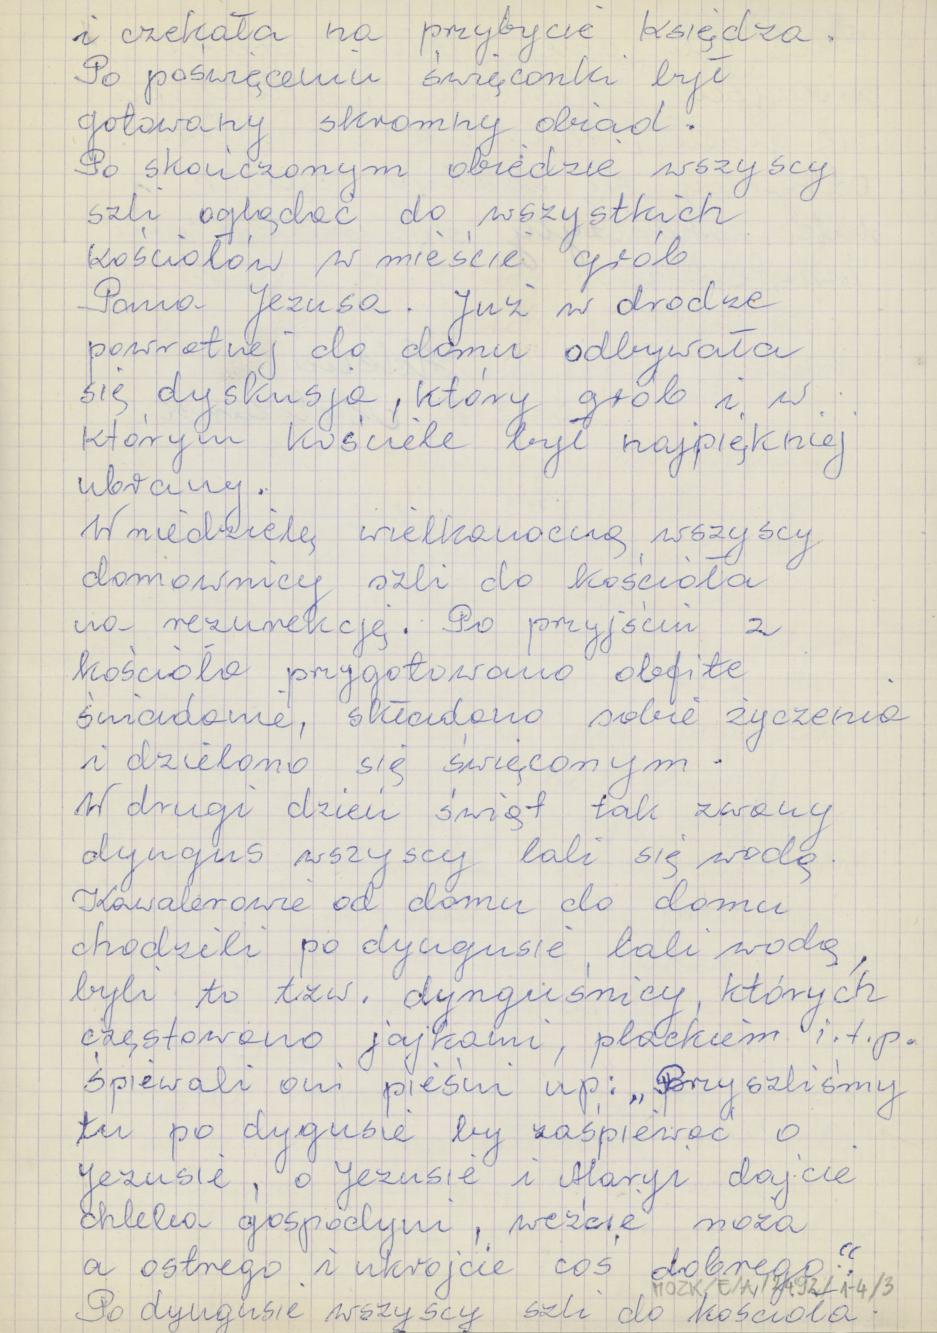 i czekała na przybycie księdza.
Po poświęceniu święconki był
gotowany skromny obiad.
Po skończonym obiedzie wszyscy
szli oglądać do wszystkich
kościołów w mieście grób
Pana Jezusa. Już w drodze
powrotnej do domu odbywała
się dyskusja, który grób i w
którym kościele był najpiękniej
ubrany.
W niedzielę wielkanocną wszyscy
domownicy szli do kościoła
na rezurekcję. Po przyjściu z
kościoła przygotowano obfite
śniadanie, składano sobie życzenia
i dzielono się święconym.
W drugi dzień świąt tak zwany
dyngus wszyscy lali się wodą.
Kawalerowie od domu do domu
chodzili po dyngusie, lali wodą,
byli to tzw. dynguśnicy, których
częstowano jajkami, plackiem i.t.p.
śpiewali oni pieśni np: „Przyszliśmy
tu po dygusie by zaśpiewać o
Jezusie, o Jezusie i Maryi dajcie
chleba gospodyni, weźcie noża
a ostrego i ukrojcie coś dobrego."
MOZK/E/A/7492/1-4/3
Po dyngusie wszyscy szli do kościoła.